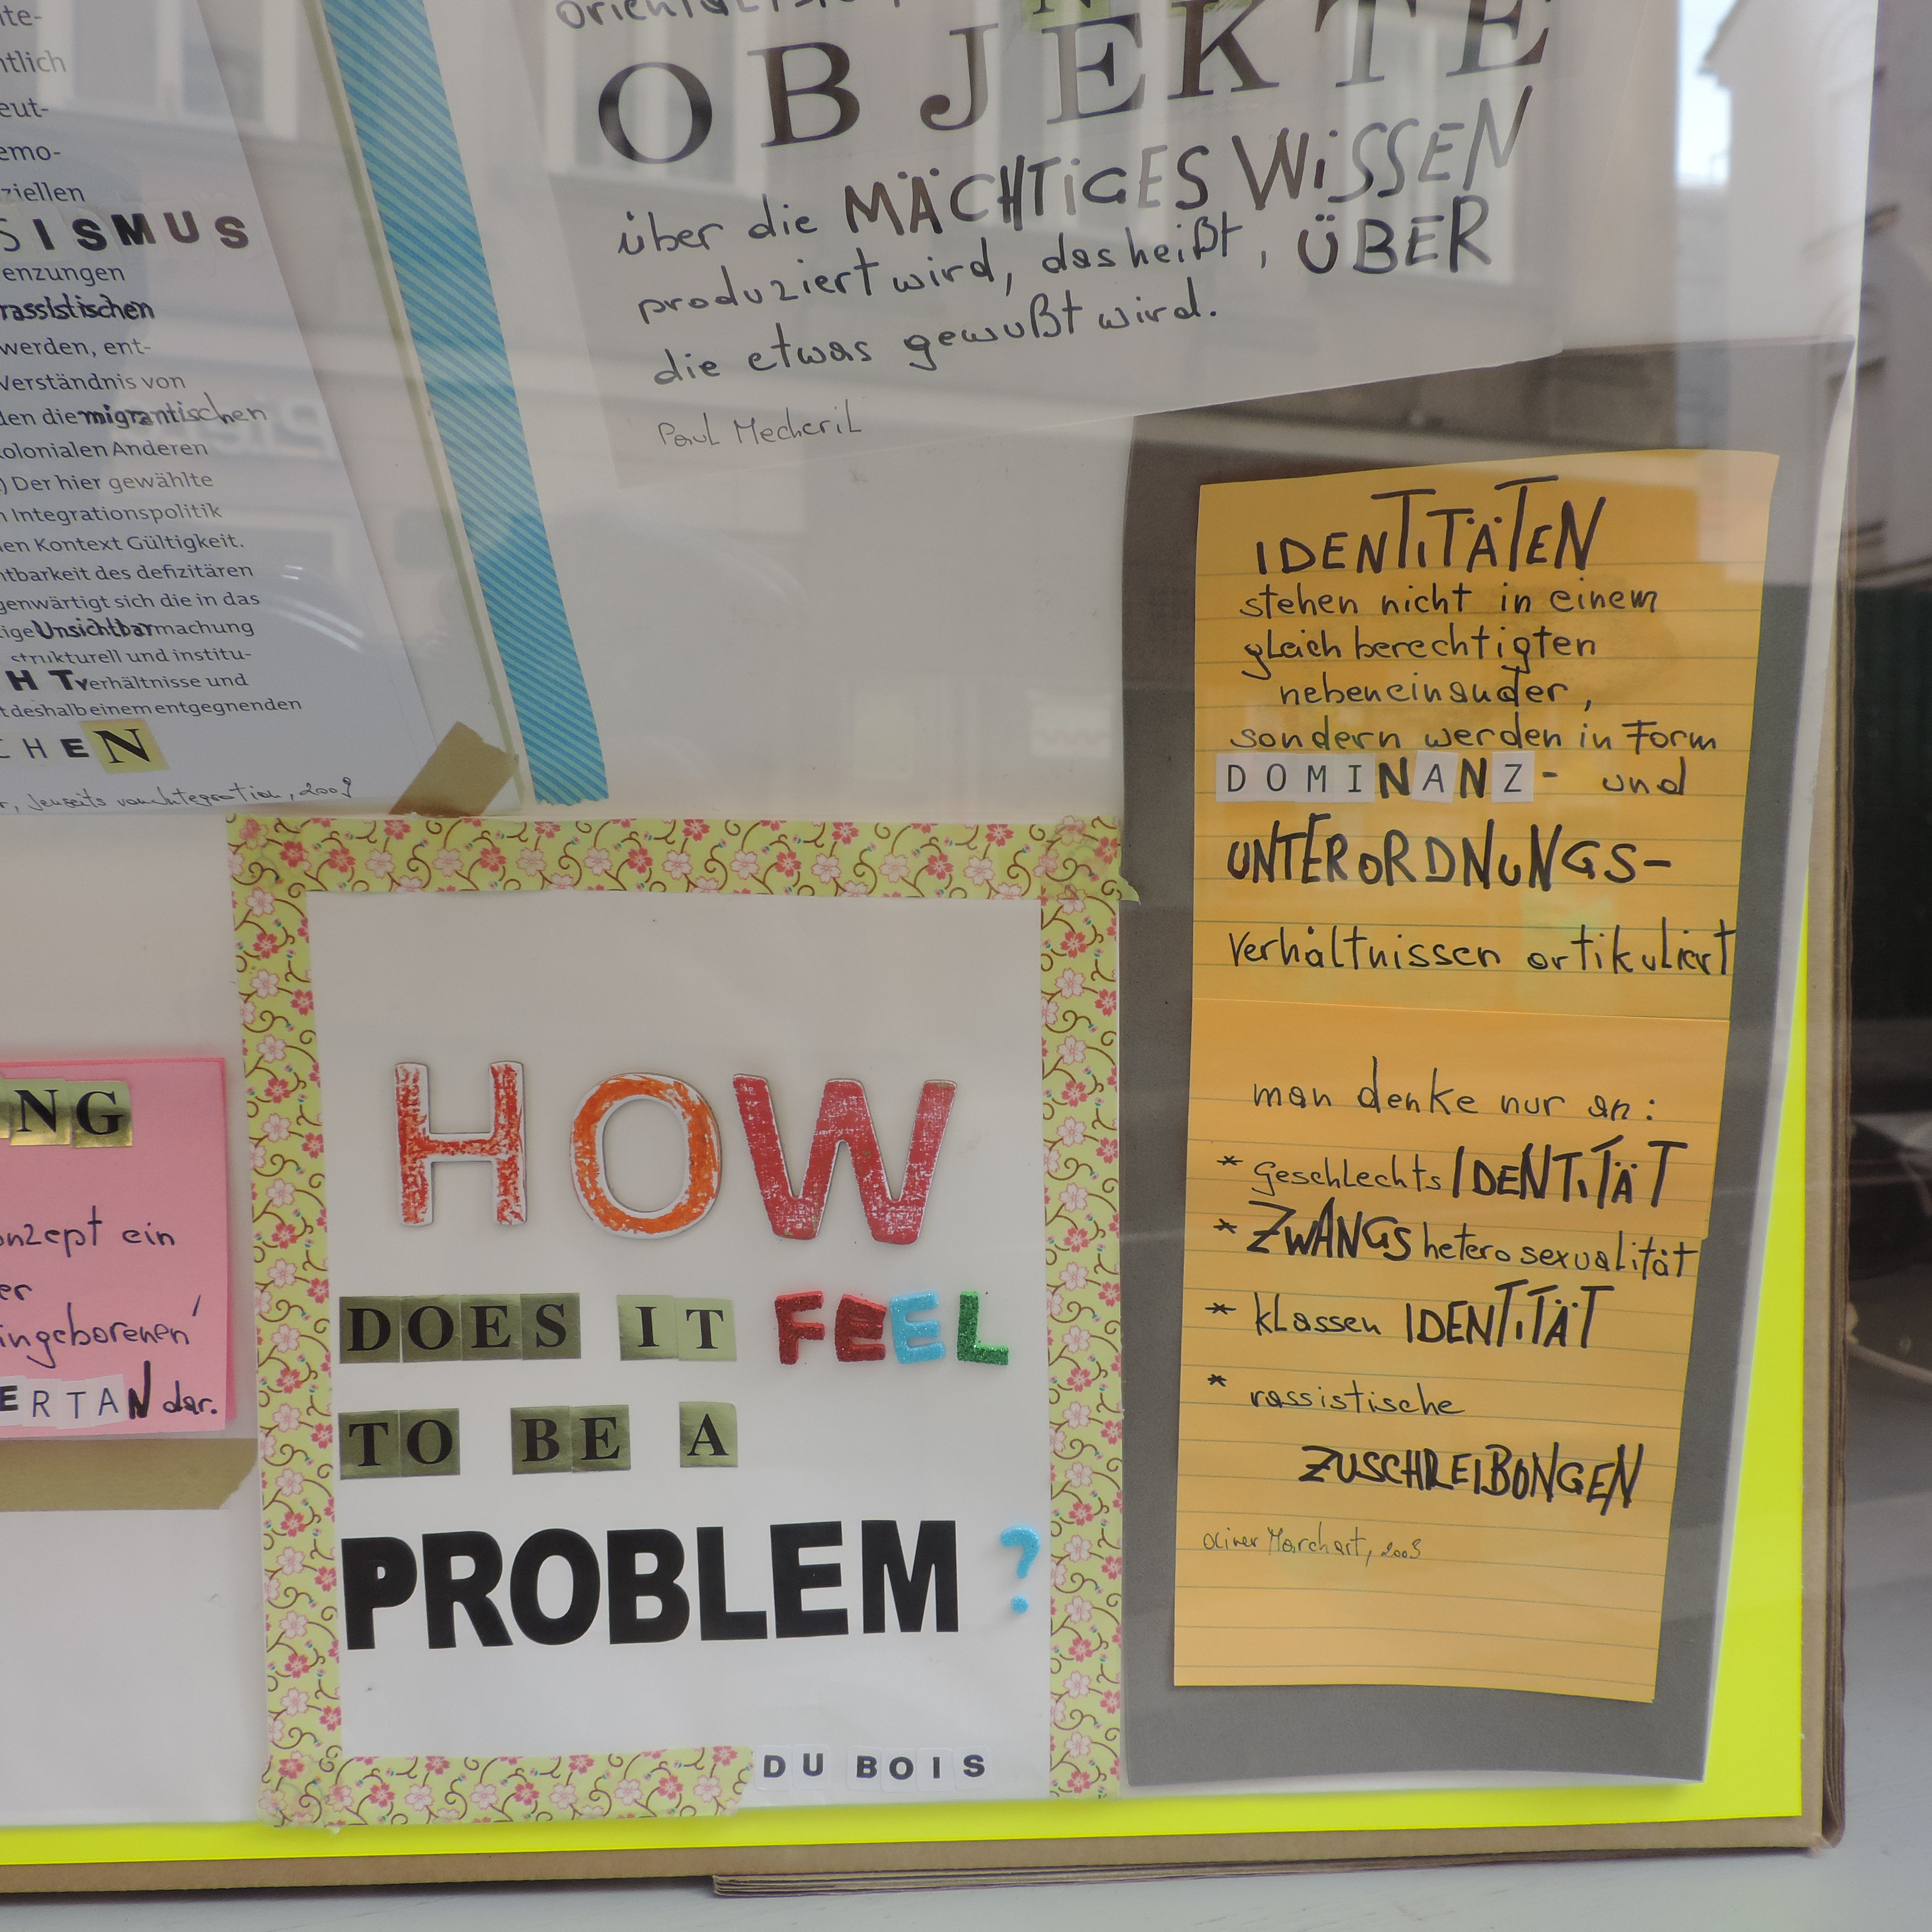 ntlich
eut-
emo-
ziellen
SISMUS
enzungen
rassistischen
werden, ent-
Verständnis von
den die migrantischen
kolonialen Anderen
) Der hier gewählte
n Integrationspolitik
en Kontext Gültigkeit.
htbarkeit des defizitären
genwärtigt sich die in das
tige Unsichtbarmachung
strukturell und institu-
HTverhältnisse und
t deshalb einem entgegnenden
CHEN
r, Jenseits von Integration, 2009
OBJEKTE
über die MÄCHTiGES WiSSEN
produziert wird, das heißt, ÜBER
die etwas gewußt wird.
Paul Mecheril
NG
onzept ein
er
ingeborenen'
ERTAN dar.
HOW
DOES IT FEEL
TO BE A
PROBLEM?
DU BOIS
IDENTITÄTEN
stehen nicht in einem
gleichberechtigten
nebeneinander,
sondern werden in Form
DOMINANZ- und
UNTERORDNUNGS-
verhältnissen artikuliert
man denke nur an:
* GeschlechtsIDENTiTÄT
* ZWANGsheterosexualität
* klassen IDENTiTÄT
* rassistische
ZUSCHREIBUNGEN
Oliver Marchart, 2003